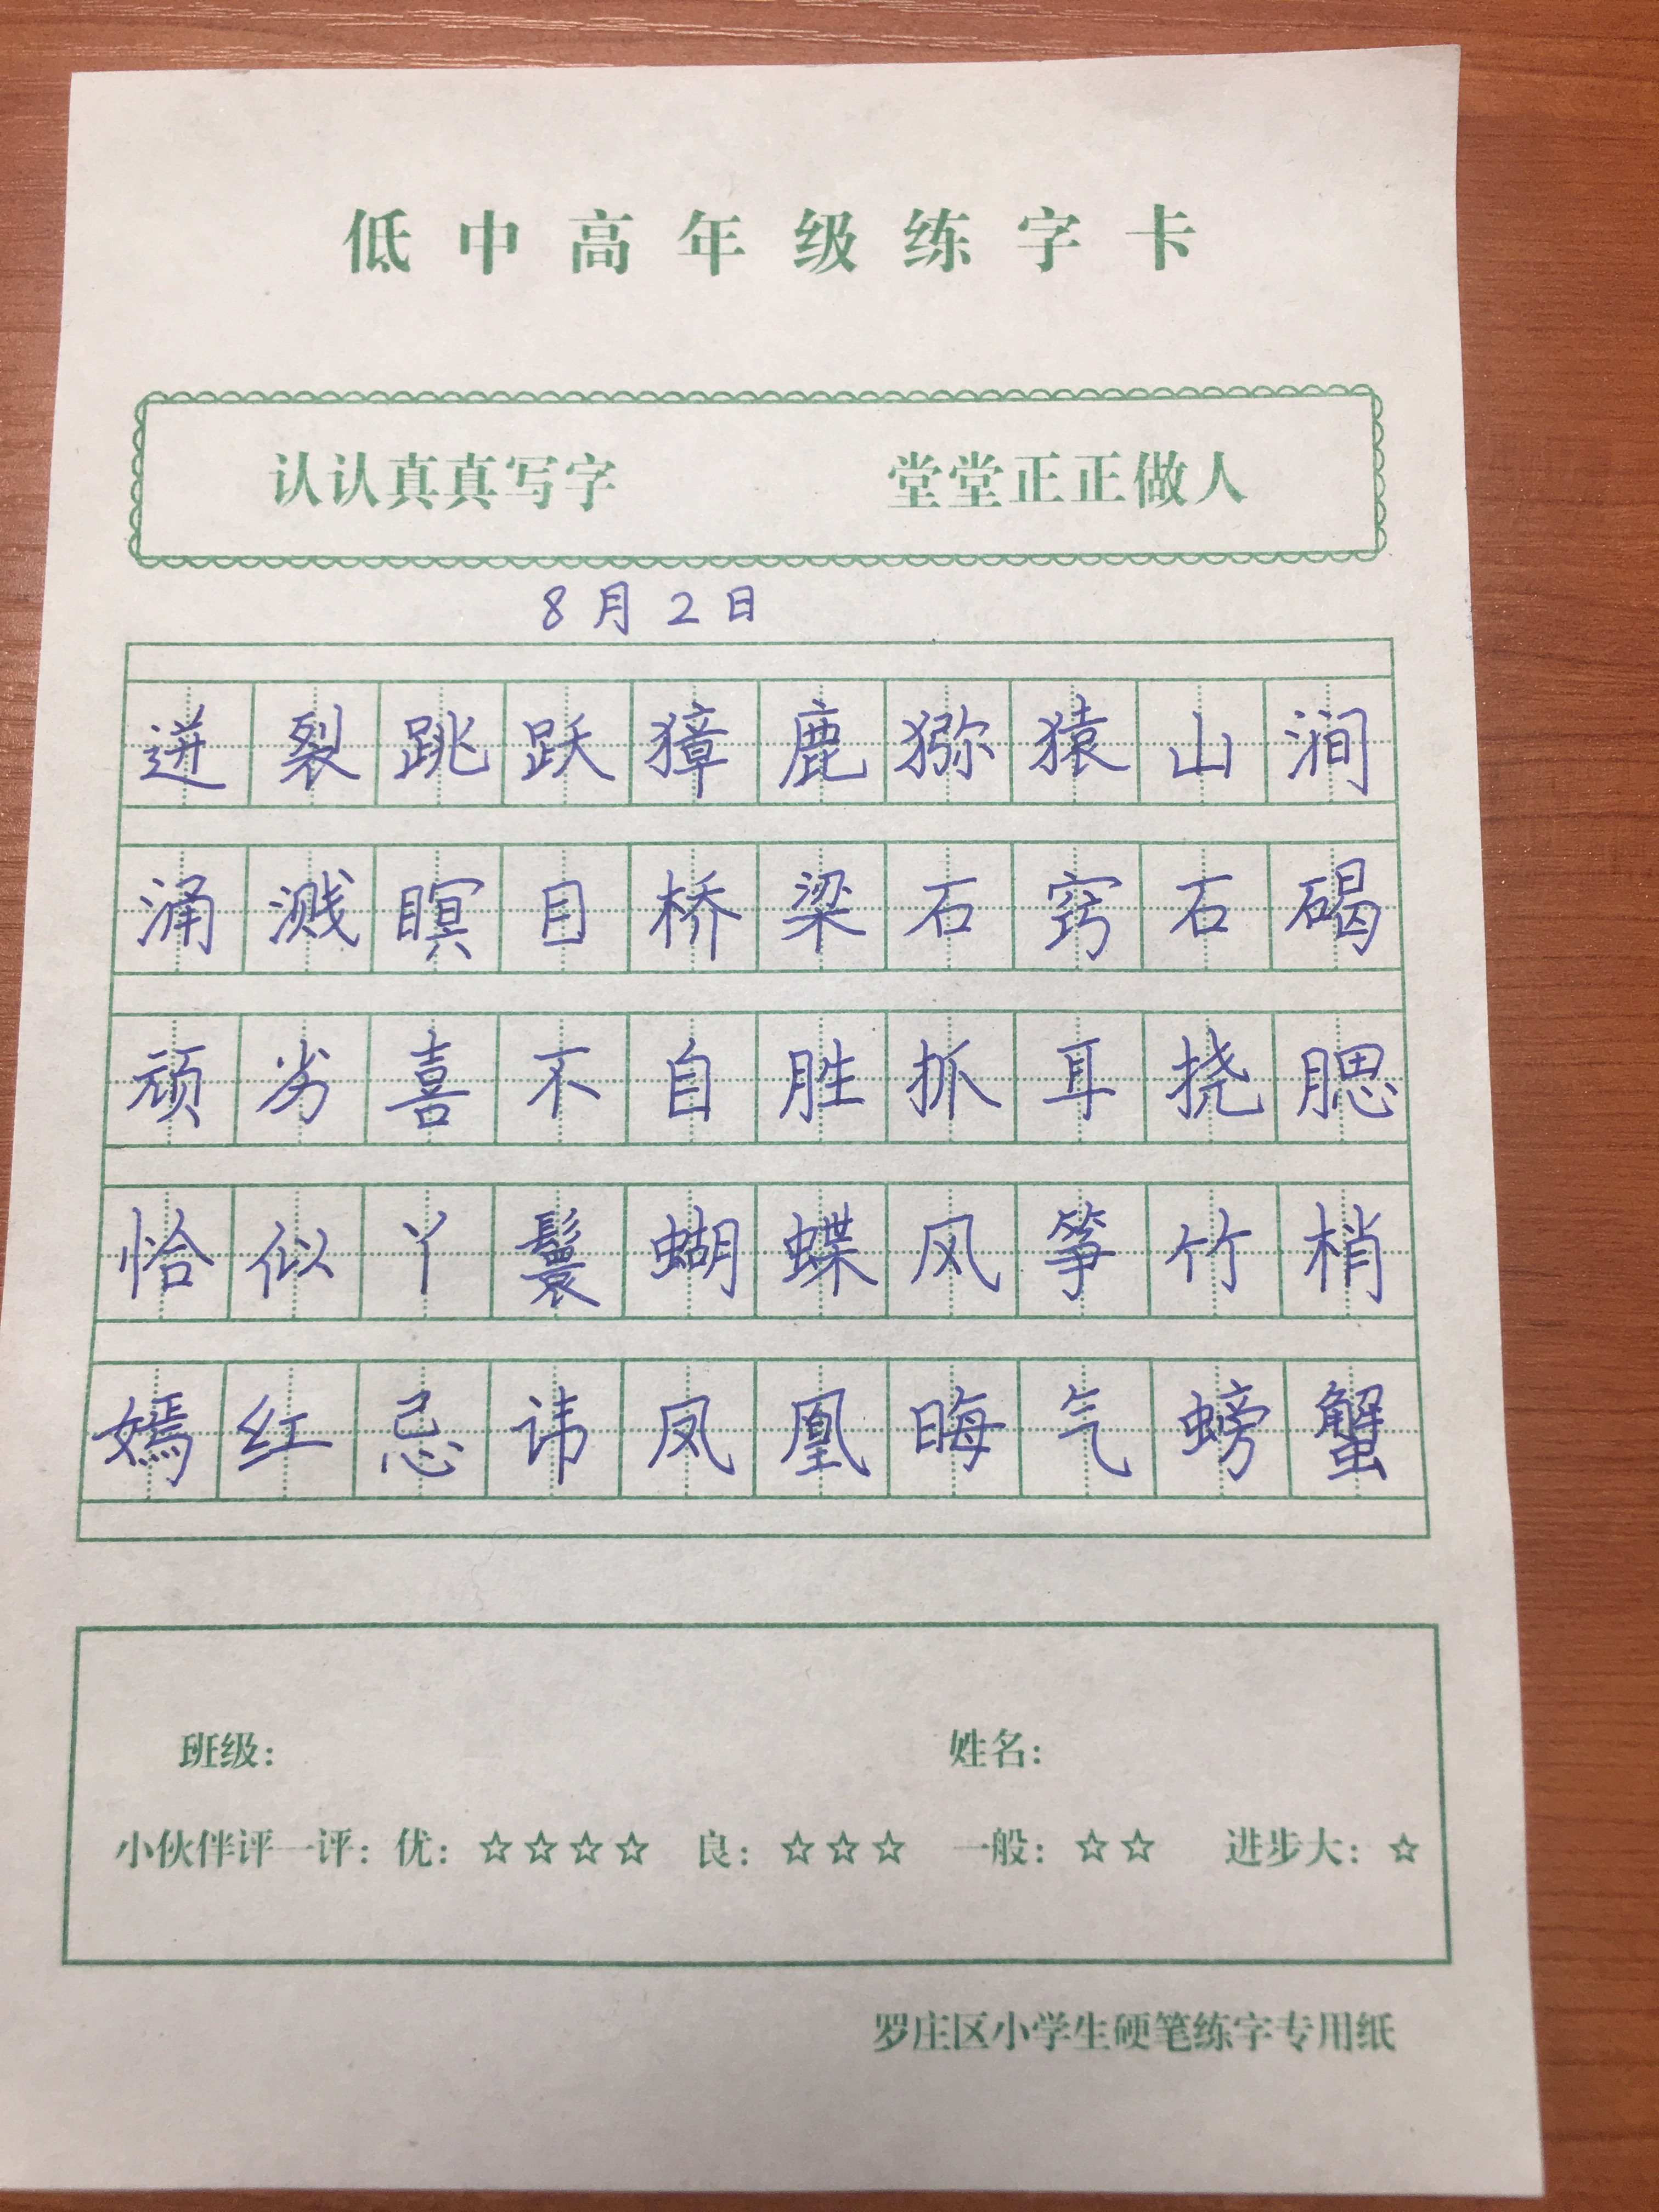 低中高年级练字卡
认认真真写字 堂堂正正做人
8月2日
迸裂跳跃獐鹿猕猿山涧
涌溅瞑目桥梁石窍石碣
顽劣喜不自胜抓耳挠腮
恰似丫鬟蝴蝶风筝竹梢
嫣红忌讳凤凰晦气螃蟹
班级: 姓名:
小伙伴评一评: 优: ☆☆☆☆ 良: ☆☆☆ 一般: ☆☆ 进步大: ☆
罗庄区小学生硬笔练字专用纸